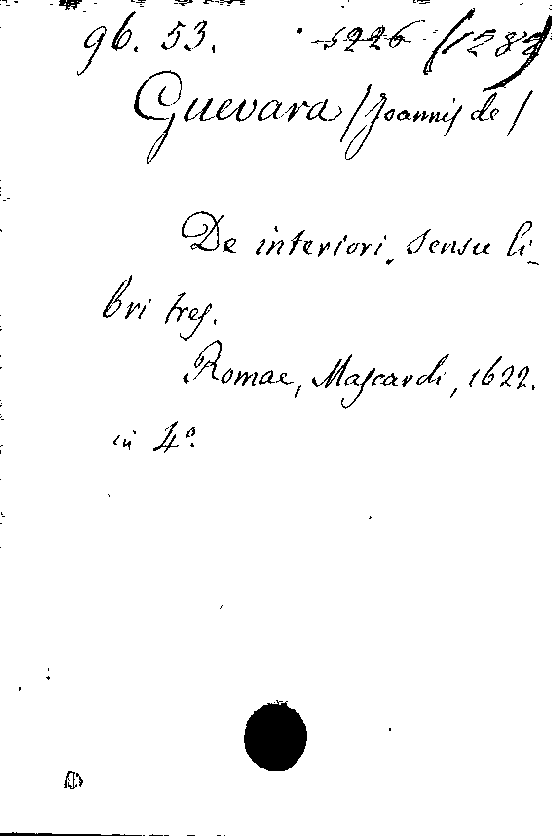 96. 53. 5226 (1287)
Guevara /Joannis de/
De interiori sensu li-
bri tres.
Romae, Mascardi, 1622.
in 4º.